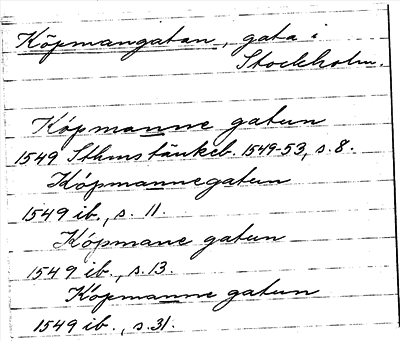 Köpmangatan, gata i
Stockholm.
Kópmanne gatun
1549 Sthms tänkeb. 1549-53, s. 8.
Kópmannegatun
1549 ib., s. 11.
Kópmane gatun
1549 ib., s. 13.
Kópmanne gatun
1549 ib., s. 31.